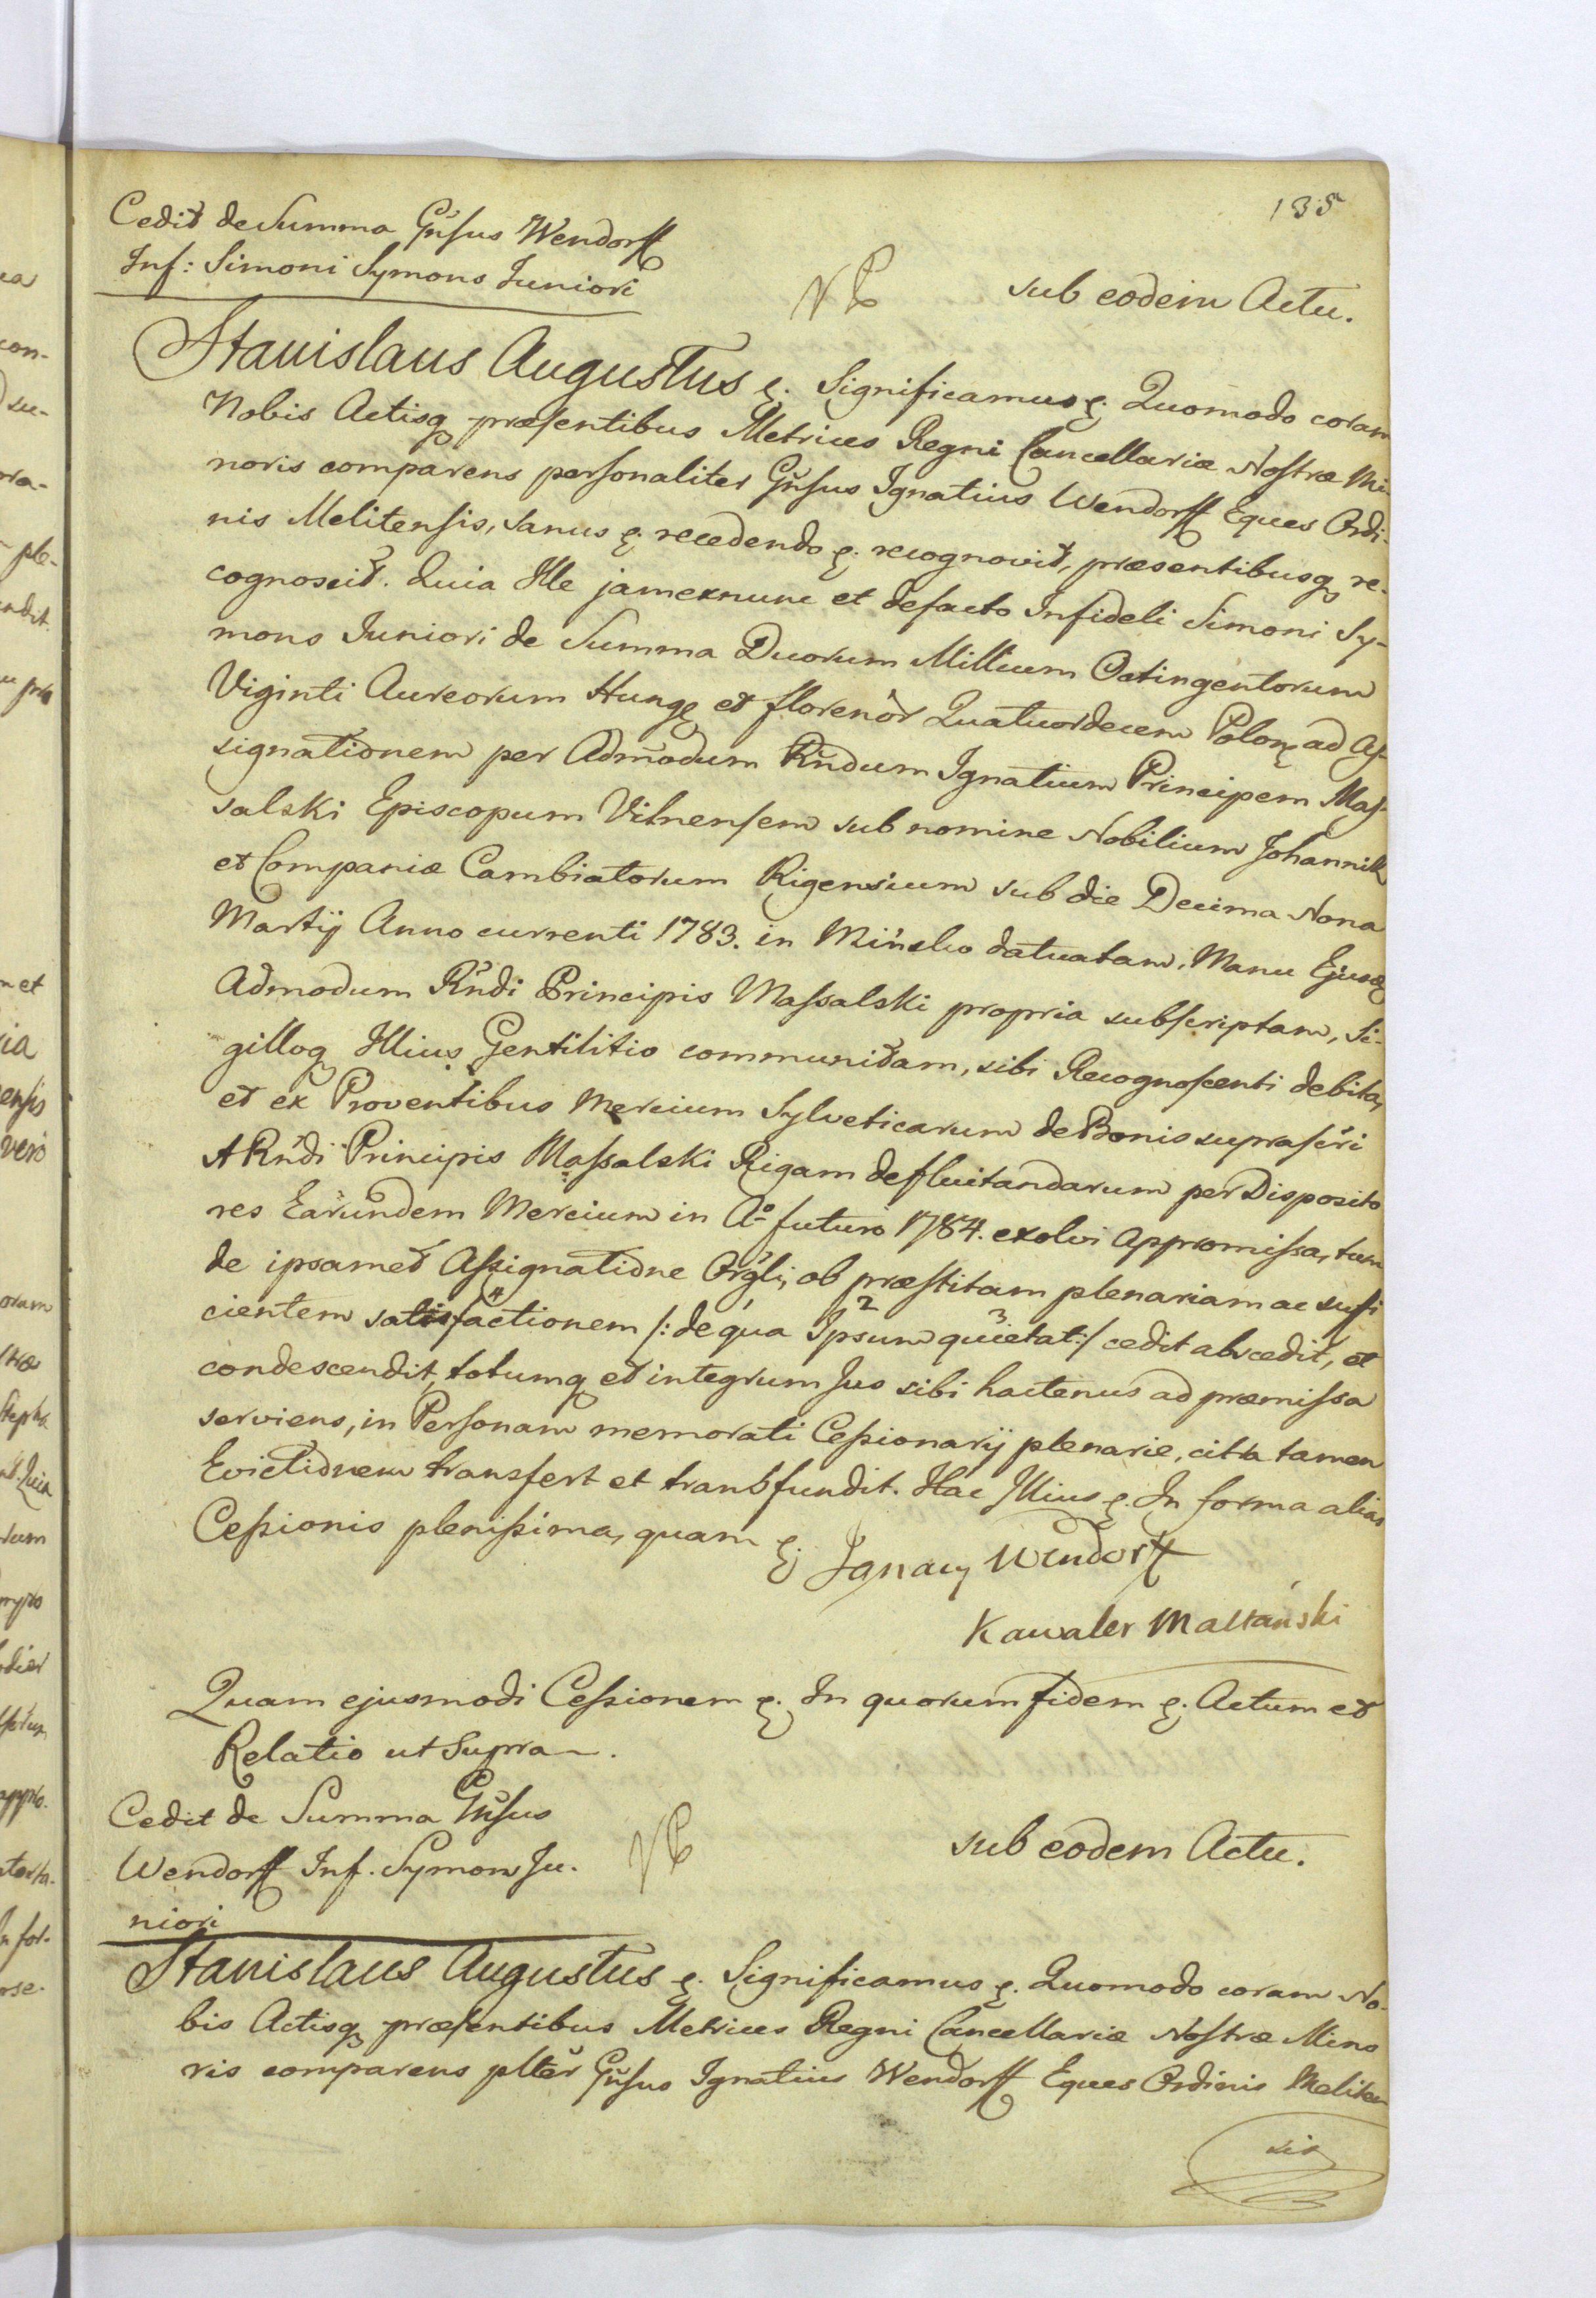 135
Cedit de Summa Gnsus Wendorff
Inf: Simoni Symons Juniori
sub eodem Actu.
Stanislaus Augustus &. Significamus &. Quomodo coram
Nobis Actisq præsentibus Metrices Regni Cancellariæ Nostræ Mi-
noris comparens personaliter Gnsus Ignatius Wendorff Eques Ordi-
nis Melitensis, sanus &. recedendo &. recognovit, præsentibusq re-
cognoscit. Quia Ille jamexnunc et defacto Infideli Simoni Sy-
mons Juniori de Summa Duorum Millium Octingentorum
Viginti Aureorum Hung et florenor Quatuordecem Polon ad As-
signationem per Admodum Rndum Ignatium Principem Mas-
salski Episcopum Vilnensem sub nomine Nobilium
et Companiæ Cambiatorum Rigensium sub die Decima Nona
Martij Anno currenti 1783. in Mińsko datuatam, Manu Ejusd
Admodum Rndi Principis Massalski propria subscriptam, Si-
gilloq Illius Gentilitio communitam, sibi Recognoscenti debita,
et ex Proventibus Mercium Sylveticarum de Bonis suprascri
A Rndi Principis Massalski Rigam defluitandarum per Disposito
res Earundem Mercium in Ao futuro 1784. exolvi appromissa, tum
de ipsamet Assignatione Orgli, ob præstitam plenariam ac suffi
cientem satisfactionem /: de qua Ipsum quietat :/ cedit abscedit, et
condescendit, totumq et integrum Jus sibi hactenus ad præmissa
serviens, in Personam memorati Cessionarij plenarie, citra tamen
Evictionem transfert et transfundit. Hac Illius &. In forma alias
Cessionis plenissima, quam &.
Ignacy Wendorff
Kawaler Maltański
Quam ejusmodi Cessionem &. In quorum fidem &. Actum et
Relatio ut Supra.
Cedit de Summa Gnsus
Wendorff Inf. Symons Ju-
niori
sub eodem Actu.
Stanislaus Augustus &. Significamus &. Quomodo coram No-
bis Actisq præsentibus Metrices Regni Cancellariæ Nostræ Mino
ris comparens plter Gnsus Ignatius Wendorff Eques Ordinis Meliten
sis